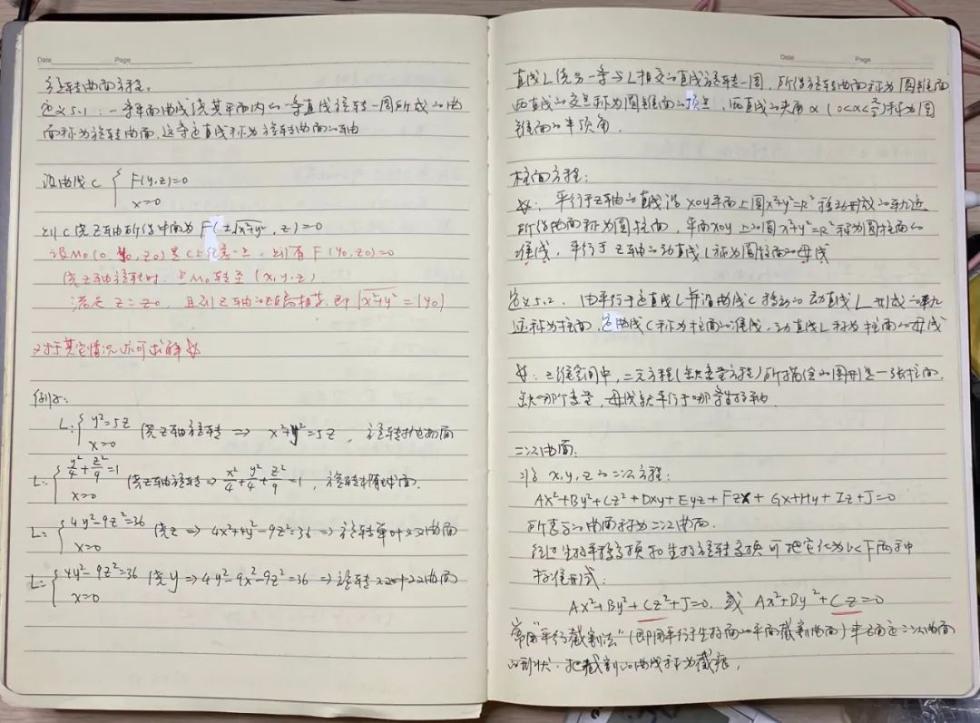 Date Page
旋转曲面方程.
定义5.1: 一条平面曲线绕其平面内的一条直线旋转一周所成的曲
面称为旋转曲面, 这条定直线称为旋转曲面的轴
设曲线C { F(y,z)=0
x=0
则C绕Z轴所得曲面为 F(±√x²+y², z)=0
设M₀(0, y₀, z₀)是C上任意一点, 则有 F(y₀,z₀)=0
绕Z轴旋转时, 点M₀转至(x,y,z)
满足 z=z₀, 且到Z轴的距离相等, 即 √x²+y²=|y₀|
对于其它情况亦可求解
例如:
L:{ y²=5z 绕z轴旋转 ⇒ x²+y²=5z, 旋转抛物面
x=0
L:{ y²/4+z²/9=1 绕z轴旋转 ⇒ x²/4+y²/4+z²/9=1, 旋转椭球面.
x=0
L:{ 4y²-9z²=36 绕z ⇒ 4x²+4y²-9z²=36 ⇒ 旋转单叶双曲面
x=0
L:{ 4y²-9z²=36 绕y ⇒ 4y²-9x²-9z²=36 ⇒ 旋转双叶双曲面
x=0
Date Page
直线L绕另一条与L相交的直线旋转一周, 所得旋转曲面称为圆锥面
两直线的交点称为圆锥面的顶点, 两直线的夹角α(0<α<π/2)称为圆
锥面的半顶角.
柱面方程:
平行于z轴的直线沿xoy平面上圆x²+y²=R²移动形成的轨迹
所得曲面称为圆柱面, 平面xoy上的圆x²+y²=R²称为圆柱面的
准线, 平行于z轴的动直线L称为圆柱面的母线
定义5.2. 由平行于定直线L并沿曲线C移动的动直线L形成的轨
迹称为柱面, 定曲线C称为柱面的准线, 动直线L称为柱面的母线
: 三维空间中, 二元方程(缺变量方程)所描绘的图形是一张柱面,
缺哪个变量, 母线就平行于哪条坐标轴.
二次曲面.
x,y,z的二次方程:
Ax²+By²+Cz²+Dxy+Eyz+Fzx+Gx+Hy+Iz+J=0
所表示的曲面称为二次曲面.
经过坐标平移变换和坐标旋转变换可把它化为以下两种
标准形式:
Ax²+By²+Cz²+J=0. 或 Ax²+By²+Cz=0
常用"平行截割法"(即用平行于坐标面的平面截割曲面)来确定二次曲面
的形状. 把截割的曲线称为截痕.